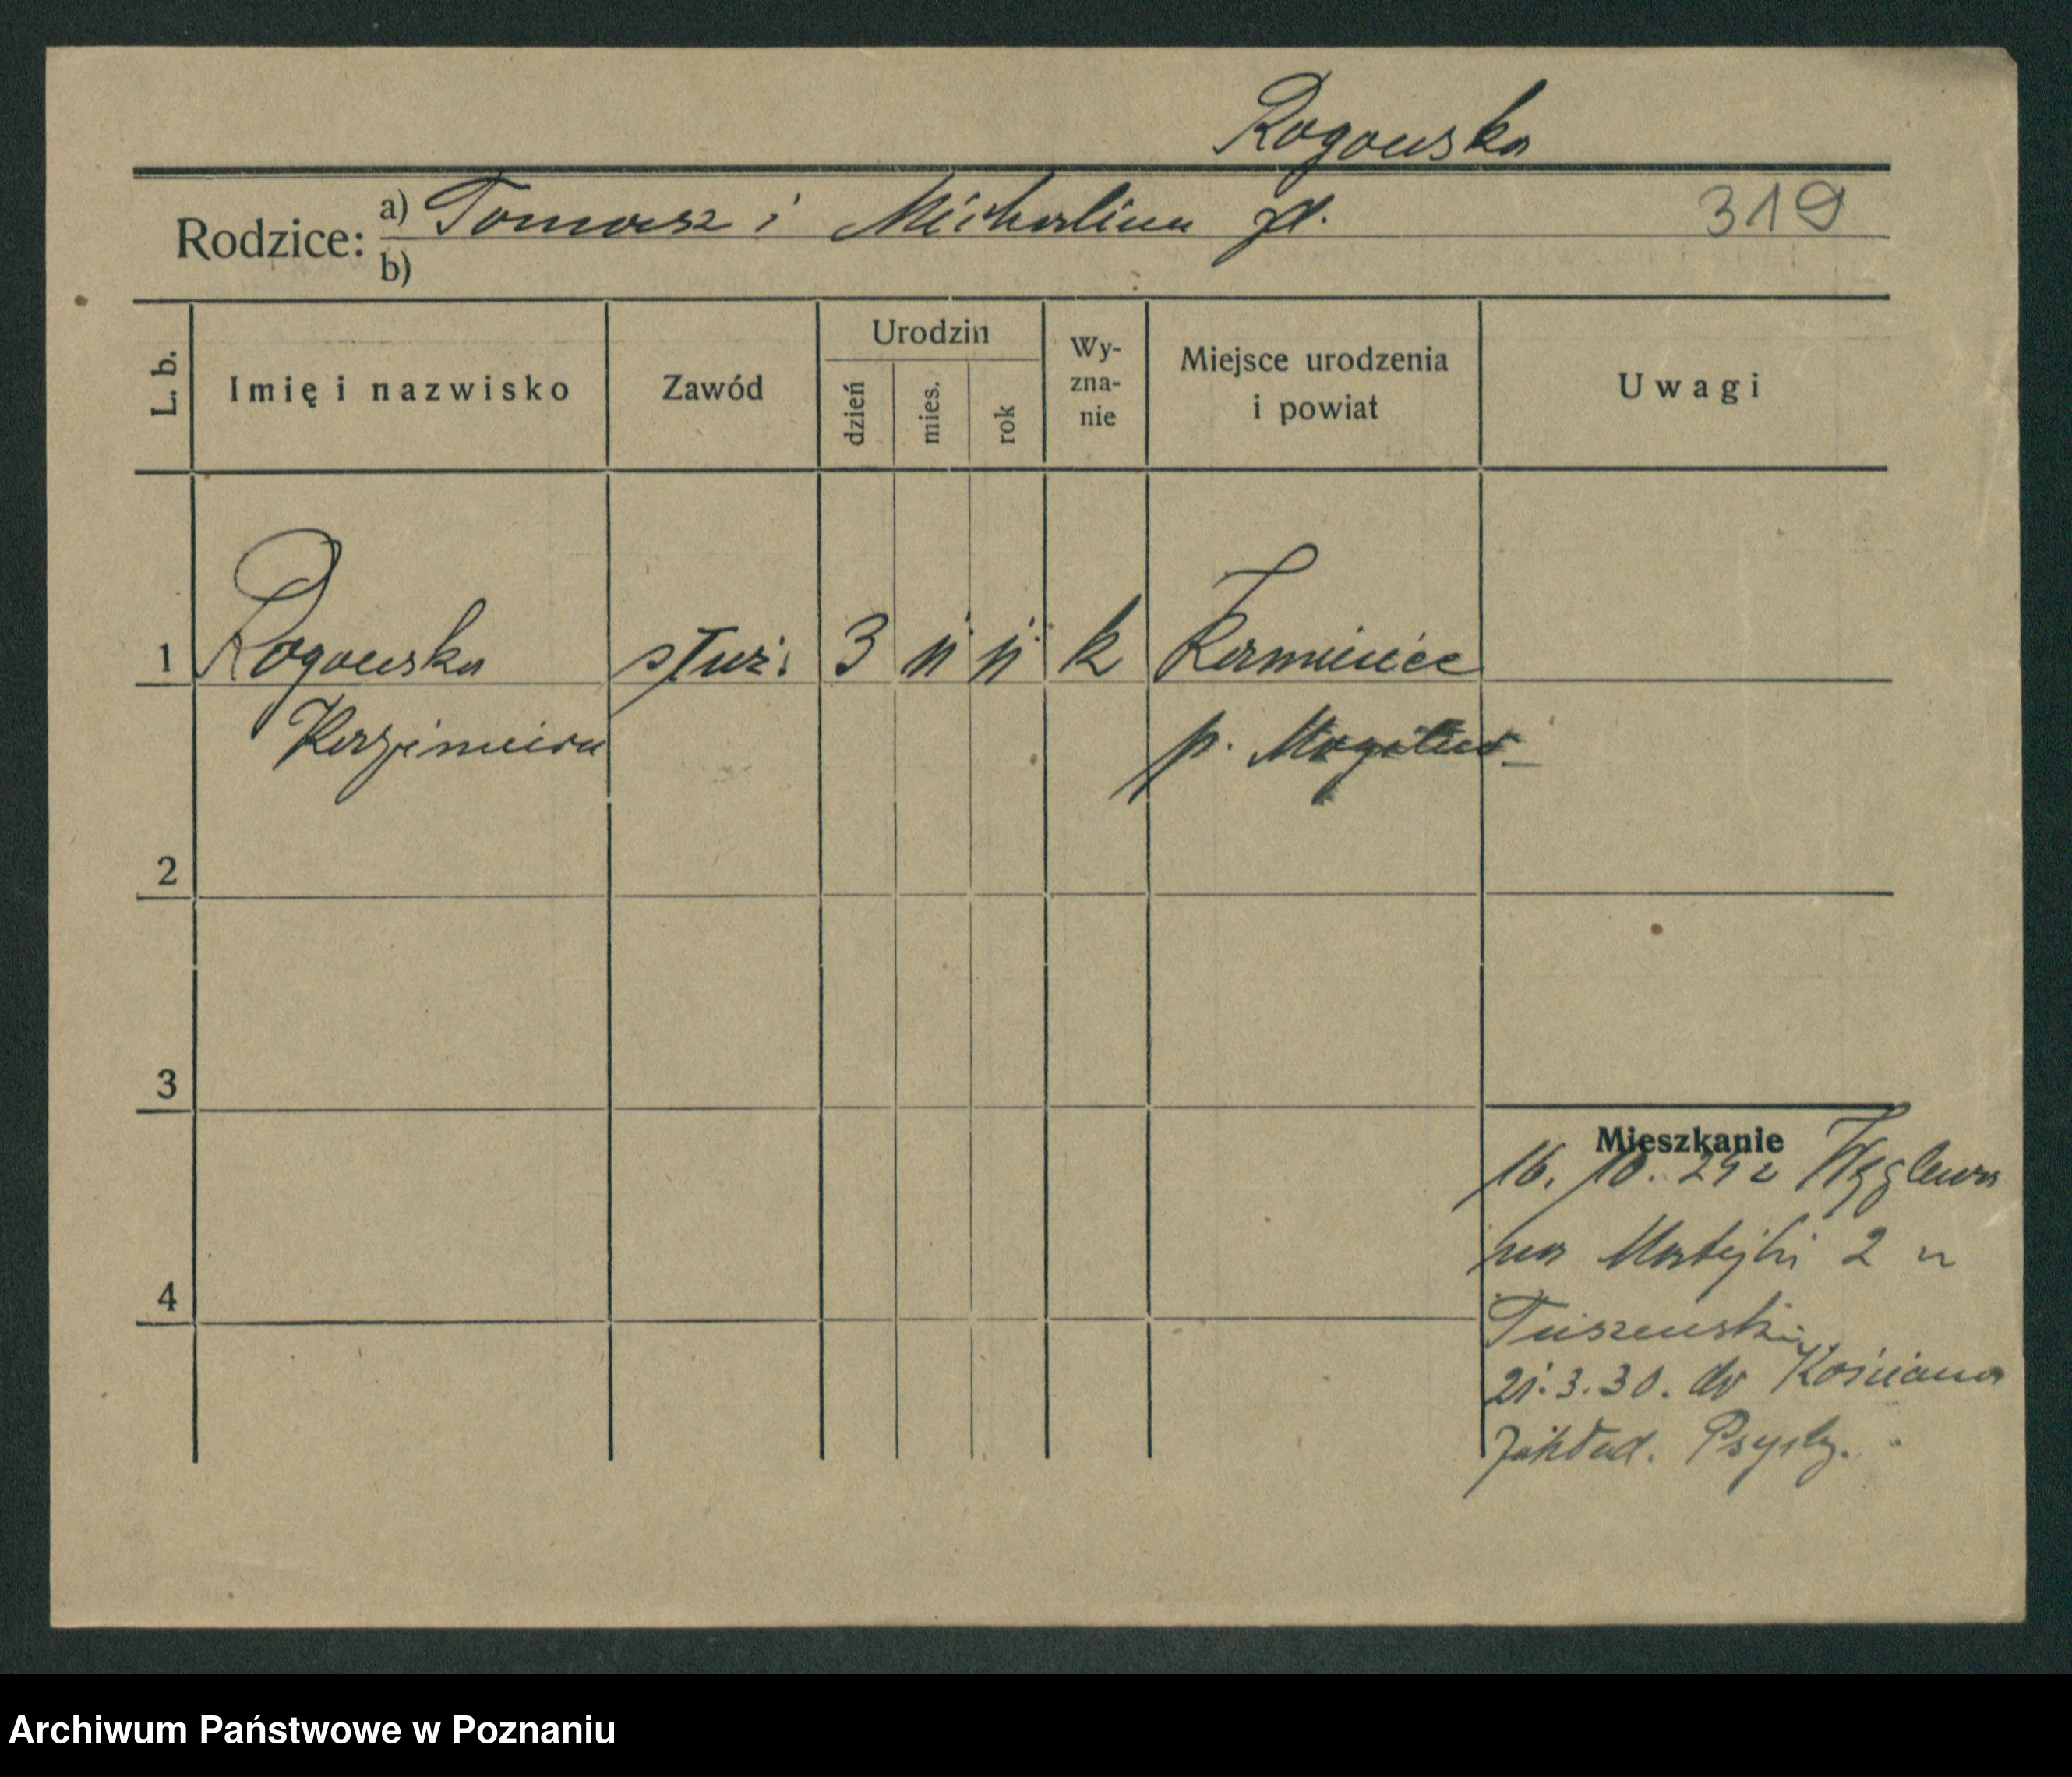 Rogowska
Rodzice: a) Tomasz i Michalina
319
b)
L. b.
Imię i nazwisko
Zawód
Urodzin
dzień
mies.
rok
Wy-
zna-
nie
Miejsce urodzenia
i powiat
Uwagi
1 Rogowska służ. 3 11 11 k Kamieniec
Kazimiera p. Mogilno
2
3
4
Mieszkanie
16. 10. 29 z
na Matejki 2 u
21.3.30. do Kościana
Zakład. Psych.
Archiwum Państwowe w Poznaniu